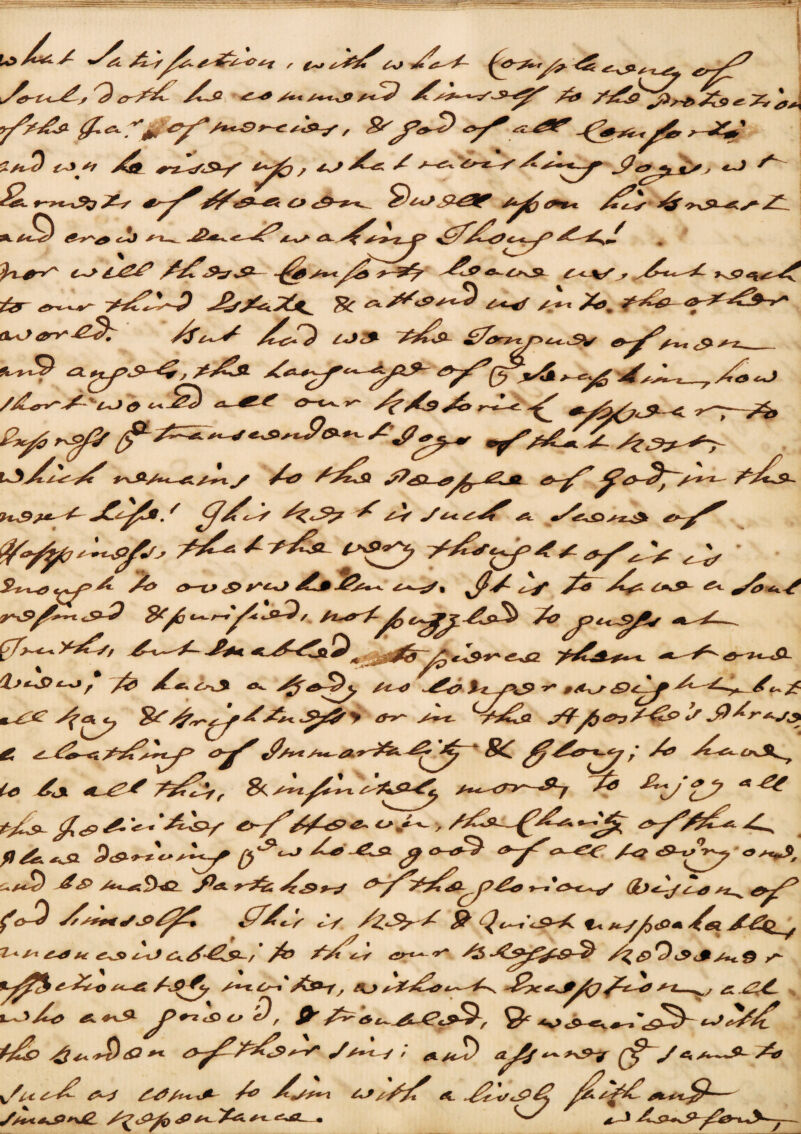 what Satisfaction, with what Complacency of
Soul, doth he commend himself to the Protection
of the Far. of mercies, & God of all Comfort;
and wn he rises up, what ravishing Joys, wt
Earnests of Heaven dwell upon his Breast
and crown Each waking Thought!
Nor will these Comforts leave us, but reach
to our third Estate & attend us into the other
world. But had we the Tongues of men
and angels, the Language of ye Seraphim, how
short would all our Rhetorick appear, to
Express ye transcendent Joys of that Rest,
which remains to the People of God, in the
next Life! This Rest is such a Scene of
Happiness, that the very thought of it is
Enough to overwhelm us. It is to have a Soul
refined & purified, not puzzled to guess at
Truths, but Enabled to pierce them at one
View; to have a Body no longer weight, but
all Ray & Brightness, or in the Apostle's Phrase,
a cloathing of Immortality & Glory; to have,
to be all this, & infinitely more, to Enjoy all
the Felicities of Heav'n, the Charity of that
Place deriving ye whole good of all to ev'ry one,
and be made Partakers of the glorious Vision of
God himself. This is Rest & Quiet unspeakable,
unconceivable; to this our Blessed Redeemer
affectionately invites, without Exception, all
who are griev'd, & troubled, & wearied with
the Burden of their Sins; and assures ye same to
Such as come to him with a lively faith and
sincere Repentance. wherefore,